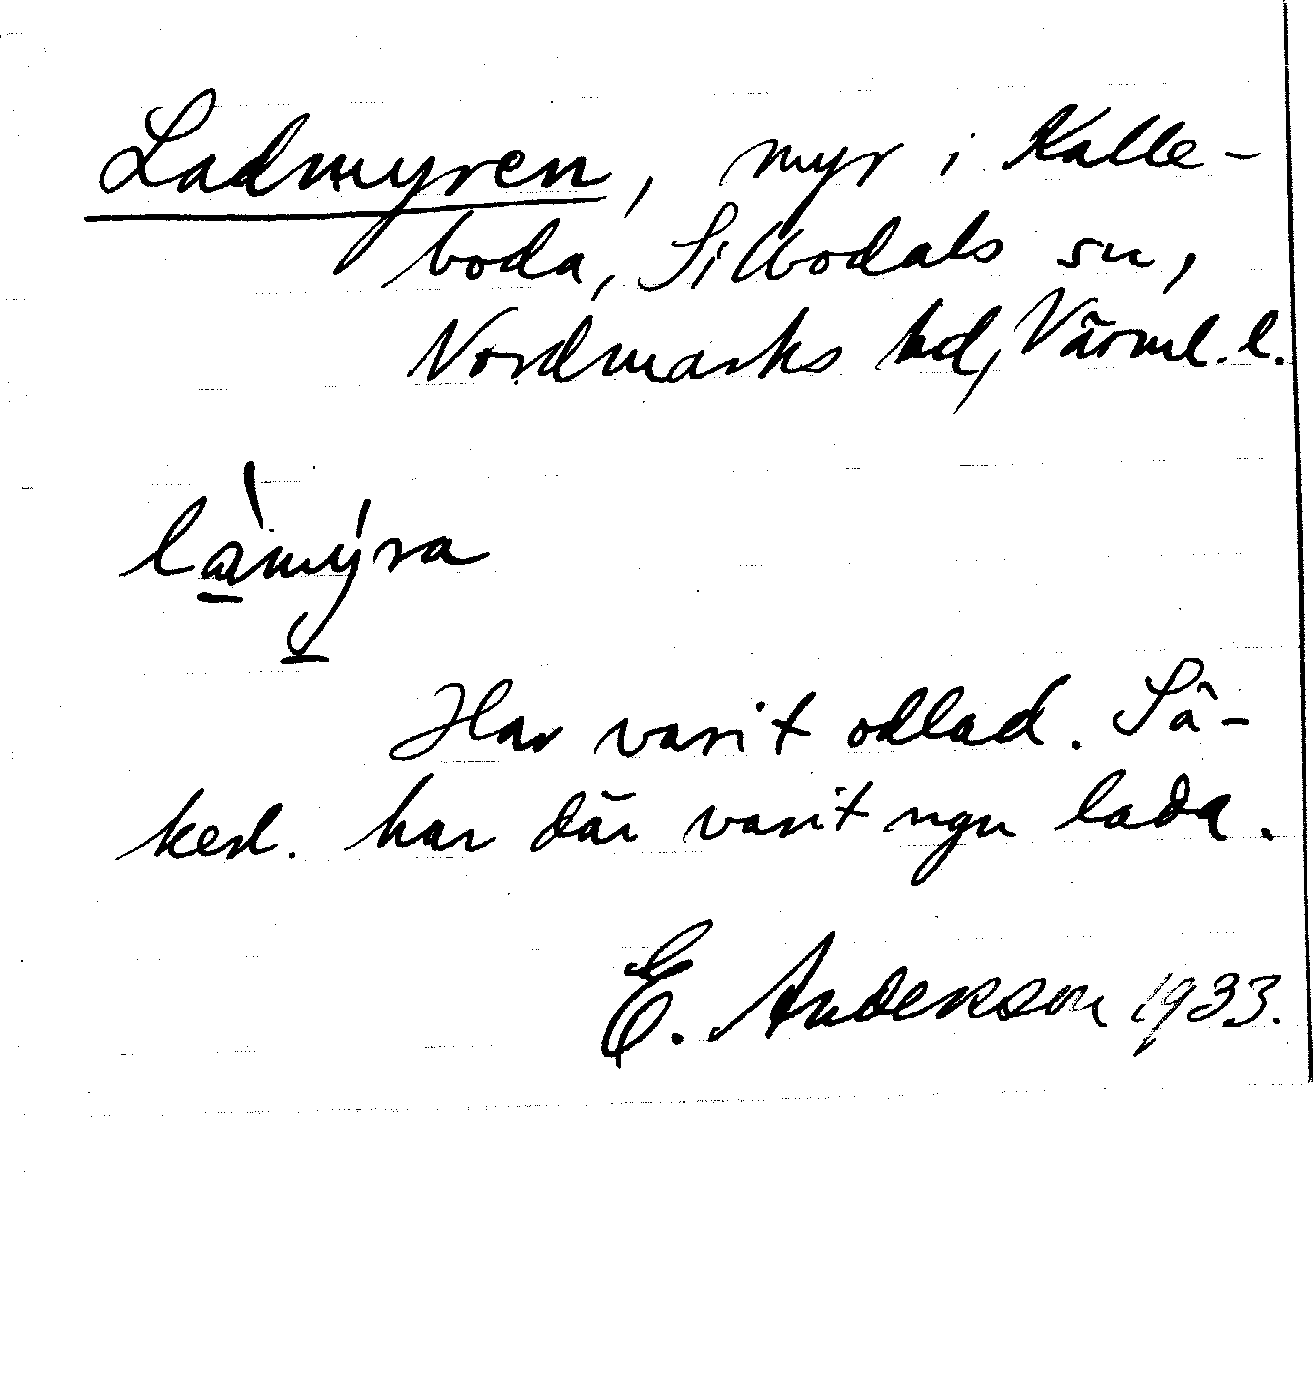 Ladmyren, myr i Kalle-
boda, Sillbodals sn,
Nordmarks hd, Värml. l.
là̱mý̱ra
Har varit odlad. Sä-
kerl. har där varit ngn lada.
E. Anderson 1933.